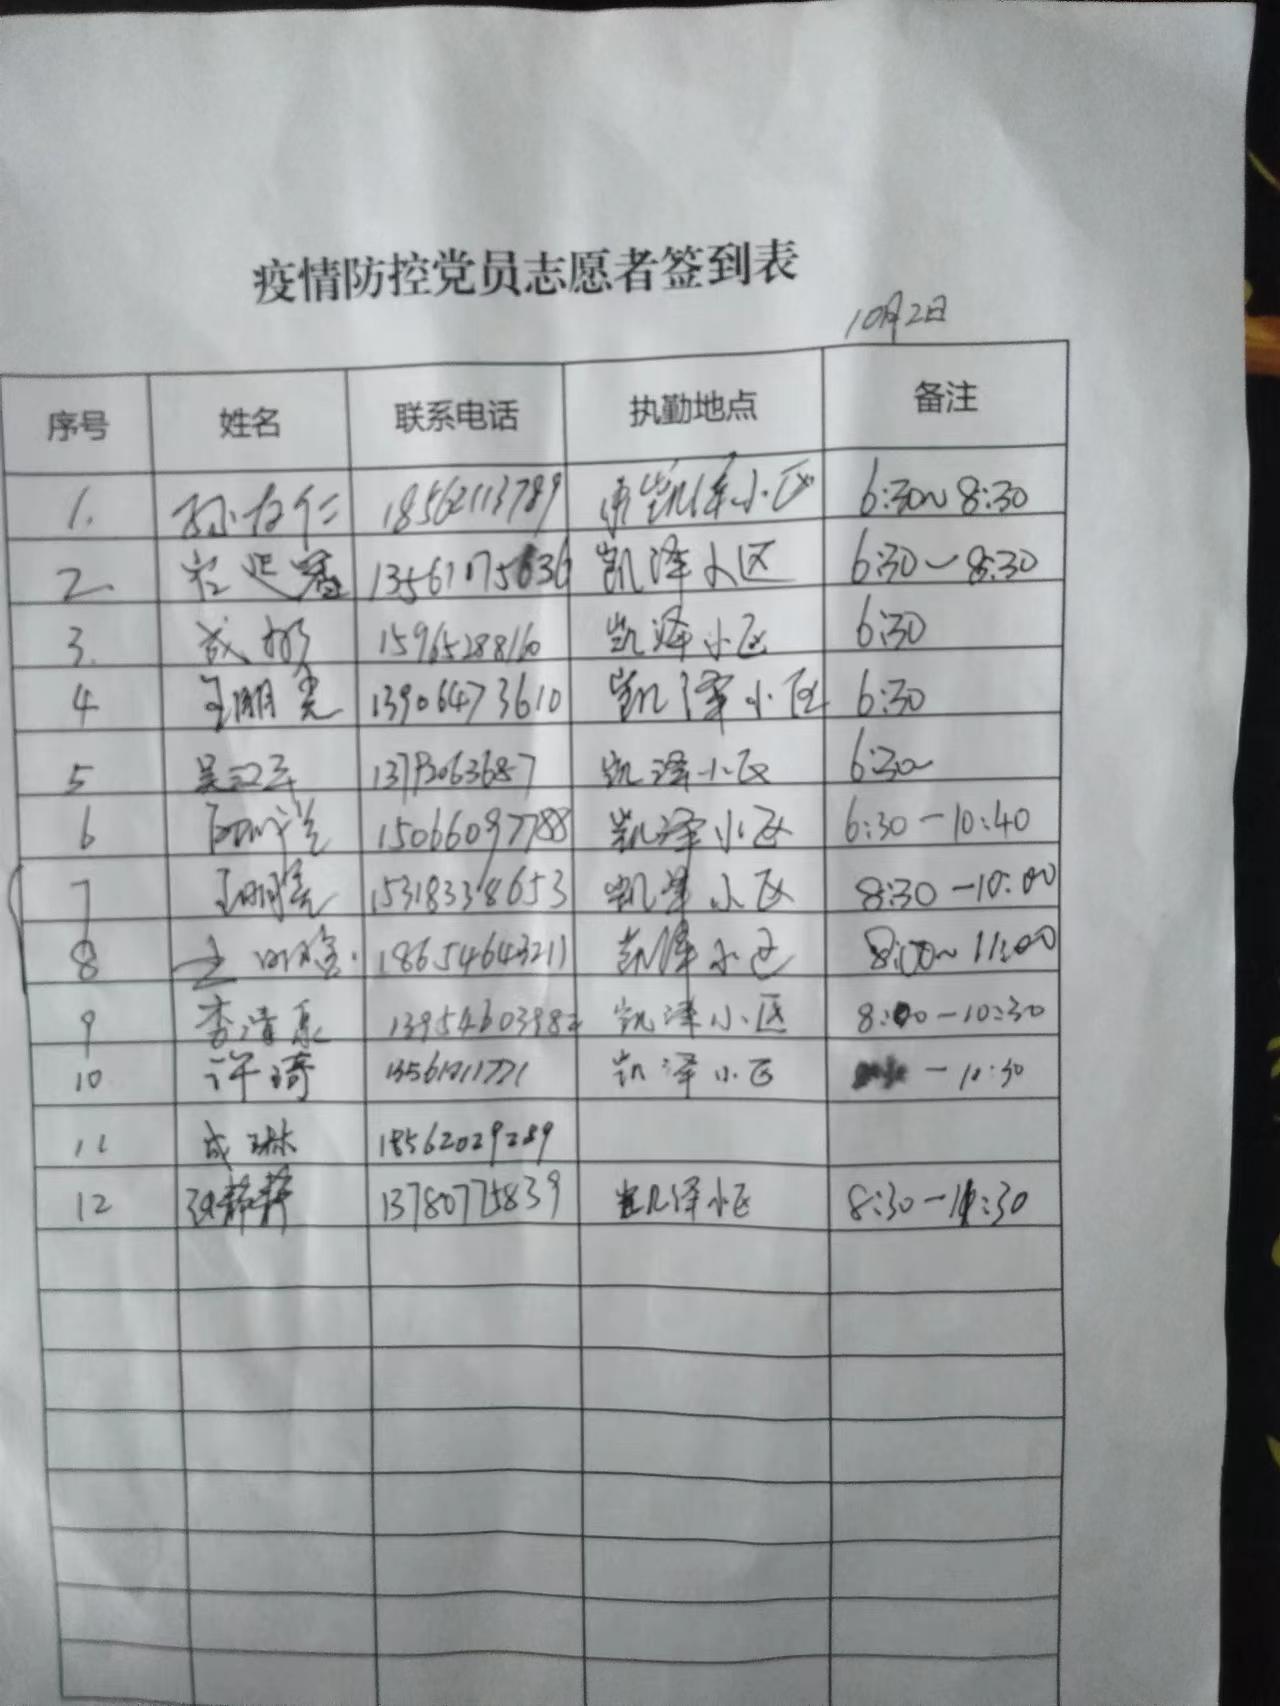 疫情防控党员志愿者签到表
10月2日
序号 姓名 联系电话 执勤地点 备注
1. 18562113789 凯泽小区 6:30~8:30
2 凯泽小区 6:30-8:30
3. 15965288160 凯泽小区 6:30
4 王明亮 13906473610 凯泽小区 6:30
5 凯泽小区 6:30~
6 15066097788 凯泽小区 6:30-10:40
7 15318338653 凯泽小区 8:30-10:00
8 18654643211 凯泽小区 8:00~11:00
9 李清泉 13954603982 凯泽小区 8:00-10:30
10 许琦 凯泽小区 -10:30
11 成琳 18562029289
12 张静静 13780775839 凯泽小区 8:30-11:30